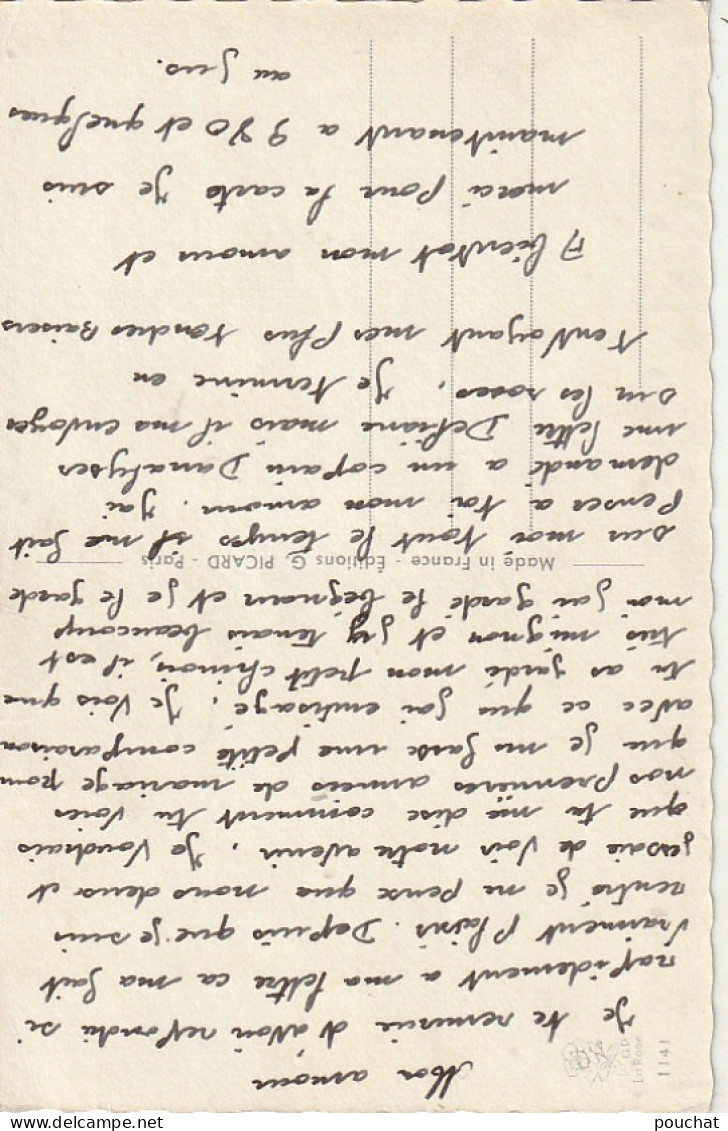 Mon amour
Je te remercie d'avoir repondu si
rapidement a ma lettre ca ma fait
vraiment plaisir. Depuis que je suis
rentré je ne pense que nous deux et
jessaie de voir notre avenir, Je voudrais
que tu me dise comment tu vois
nos premieres années de mariage pour
que je me fasse une petite comparaison
avec ce que j'ai envisagé, Je vois que
tu as gardé mon petit chinois, il est
très mignon et j'y tenais beaucoup
moi j'ai gardé le begnour et je le garde
sur moi tout le temps il me fait
Penser a toi mon amour. J'ai
demandé a un copain Danalyser
une lettre Defiane mais il ma envoyer
sur les roses, Je termine en
t'envoyant mes Plus tendres Baisers
A bientot mon amour et
merci pour la carte Je suis
maintenant a 970 et quelques
au jus.
Made in France - Éditions G. PICARD - Paris
1141
La Rose
GP
pouchat